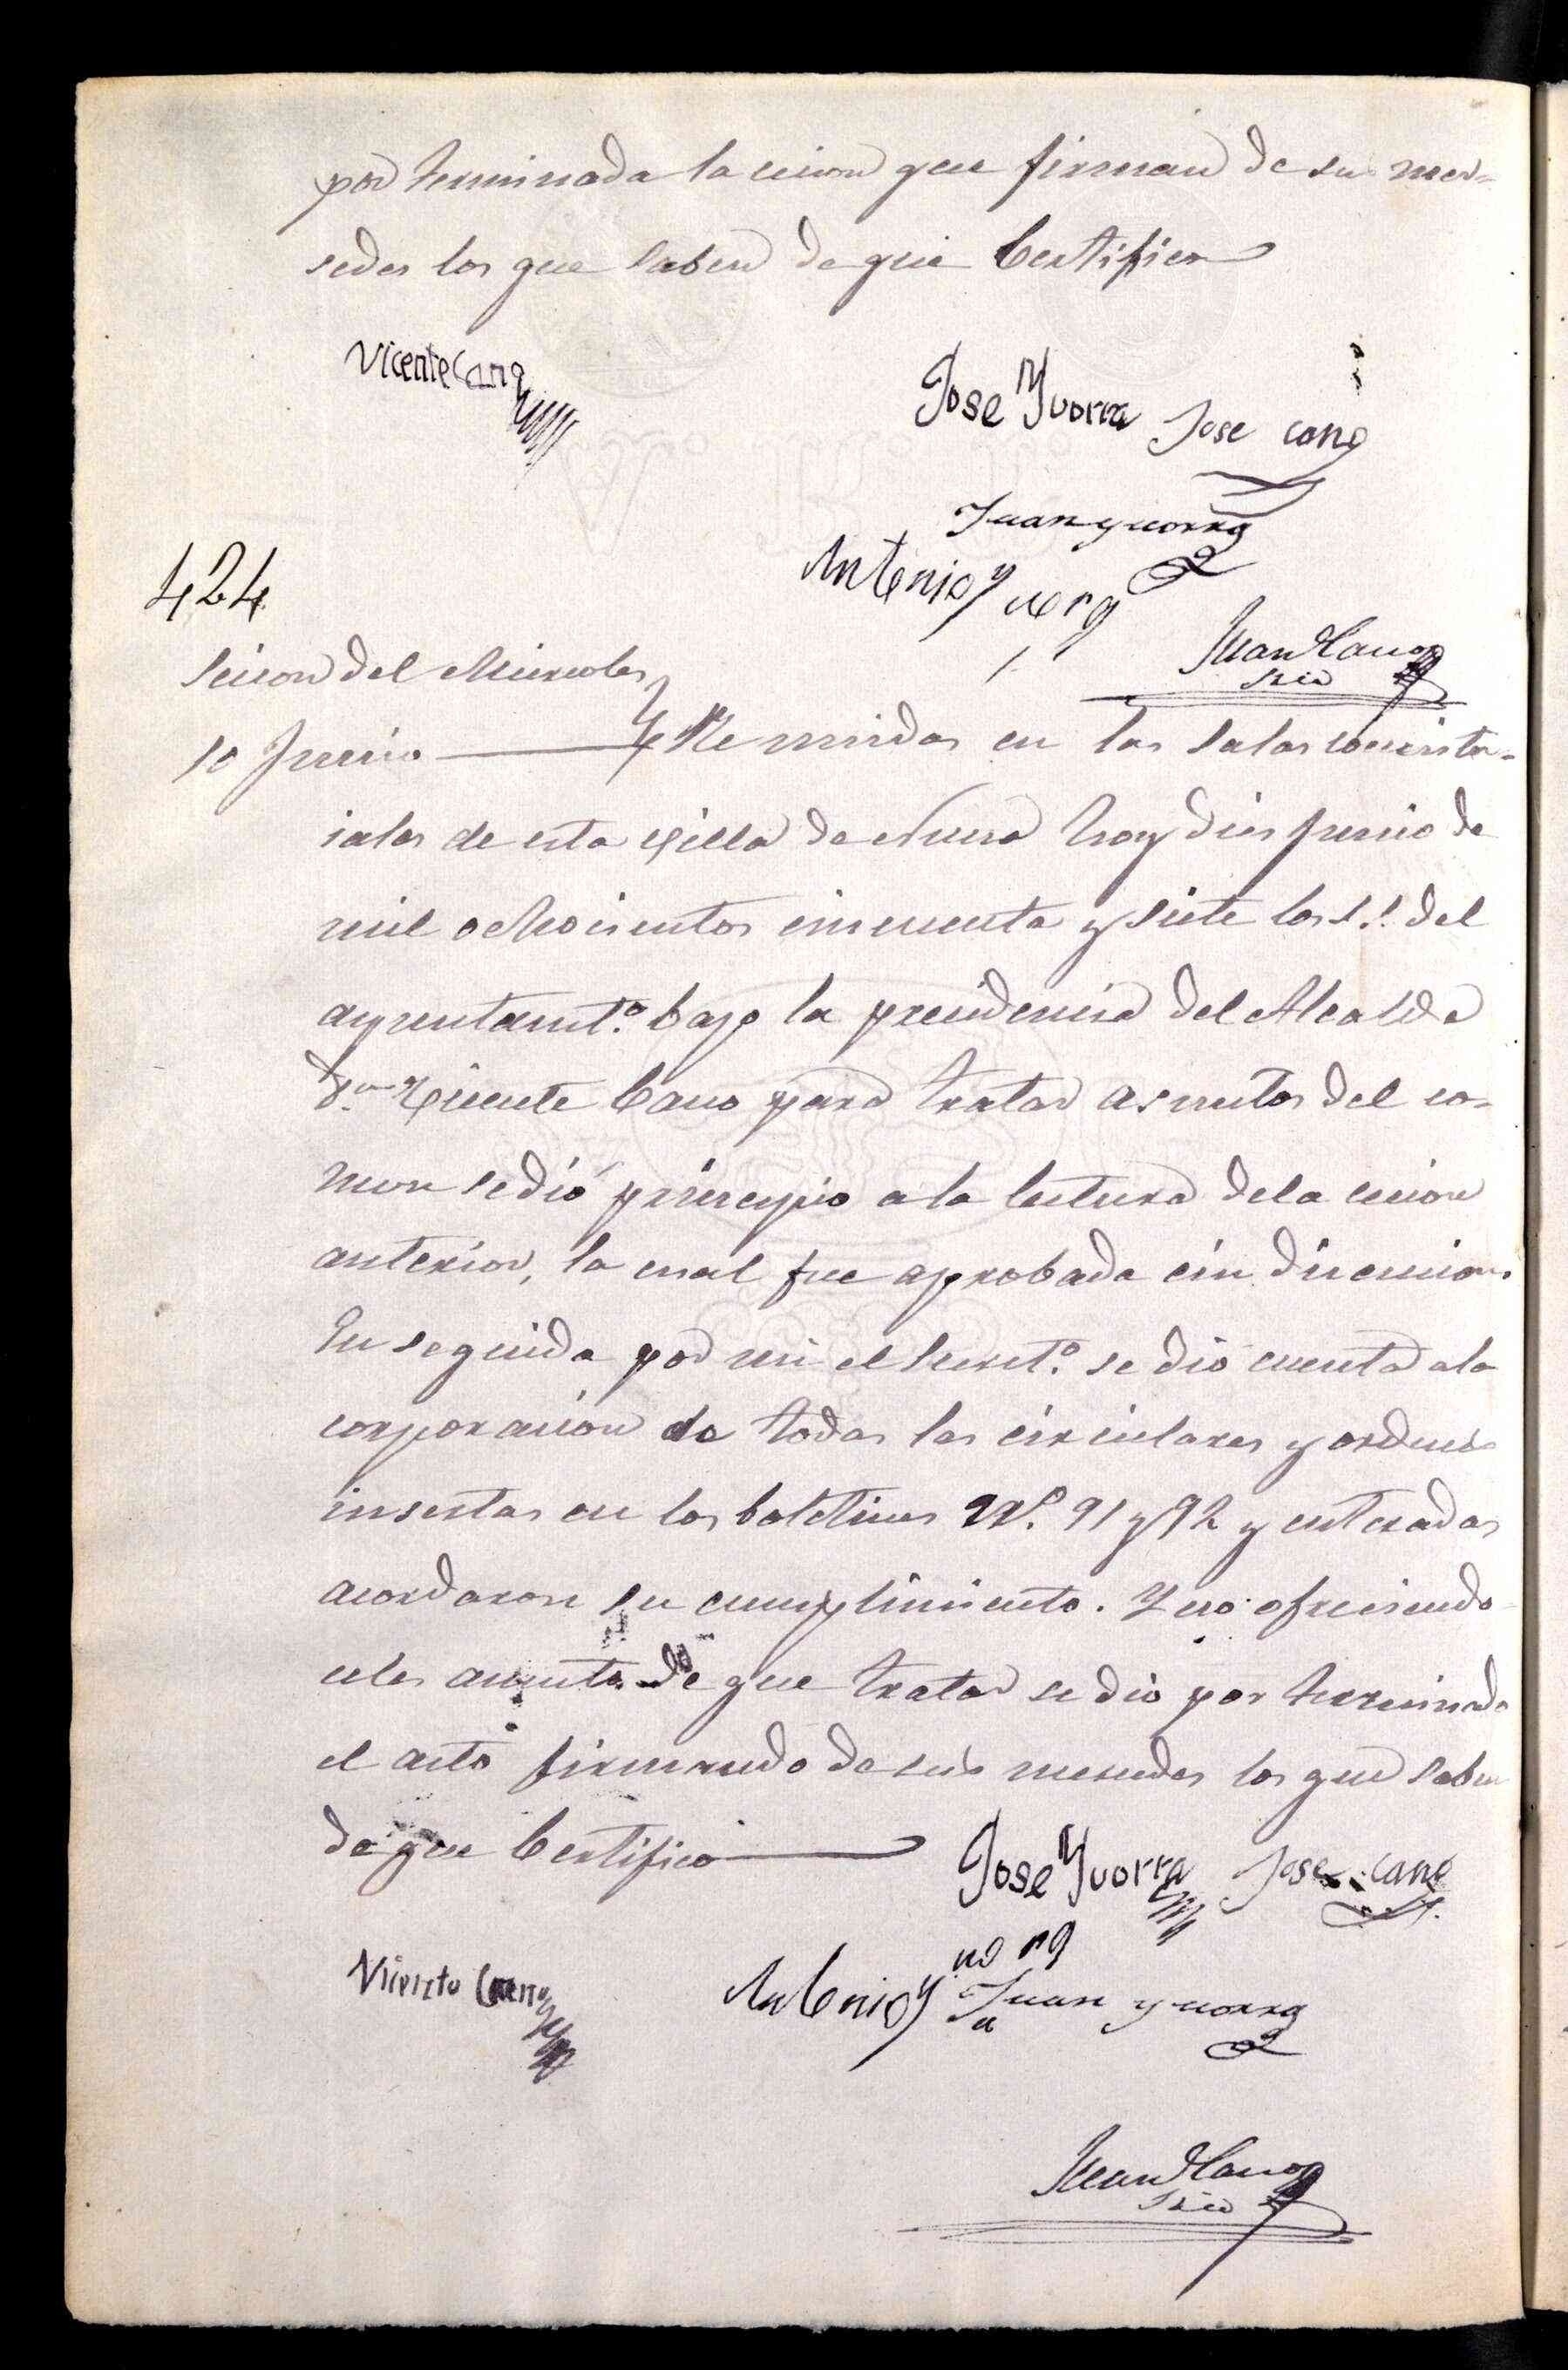 por terminada la cecion que firman de su mer-
sedes los que saben de que Certifico
Vicente Cano
Jose Yvorra Jose cano
Juan yvorra
Antonio Yvorra
424
Juan Cano
Srio
Secion del Miercoles
10 Junio Reunidos en las salas consisto-
riales de esta Villa de hoy dies Junio de
mil ochocientos cincuenta y siete los S.S. del
ayuntamt.º bajo la precidencia del Alcalde
Dn Vicente Cano para tratar asuntos del co-
mun se dió principio a la lectura dela cecion
anterior, la cual fue aprobada cin discucion.
En seguida por mi el Secret.º se dió cuenta ala
corporacion de todas las circulares y ordenes
insertas en los boletines Nº. 91 y 92 y enterados
acordaron su cumplimiento. Y no ofreciendo
celes asunto de que tratar se dio por terminado
el acto firmando de sus mercedes los que saben
de que Certifico
Jose Yvorra Jose cano
Vicente Cano
Antonio Y Juan yvorra
Juan Cano
Srio